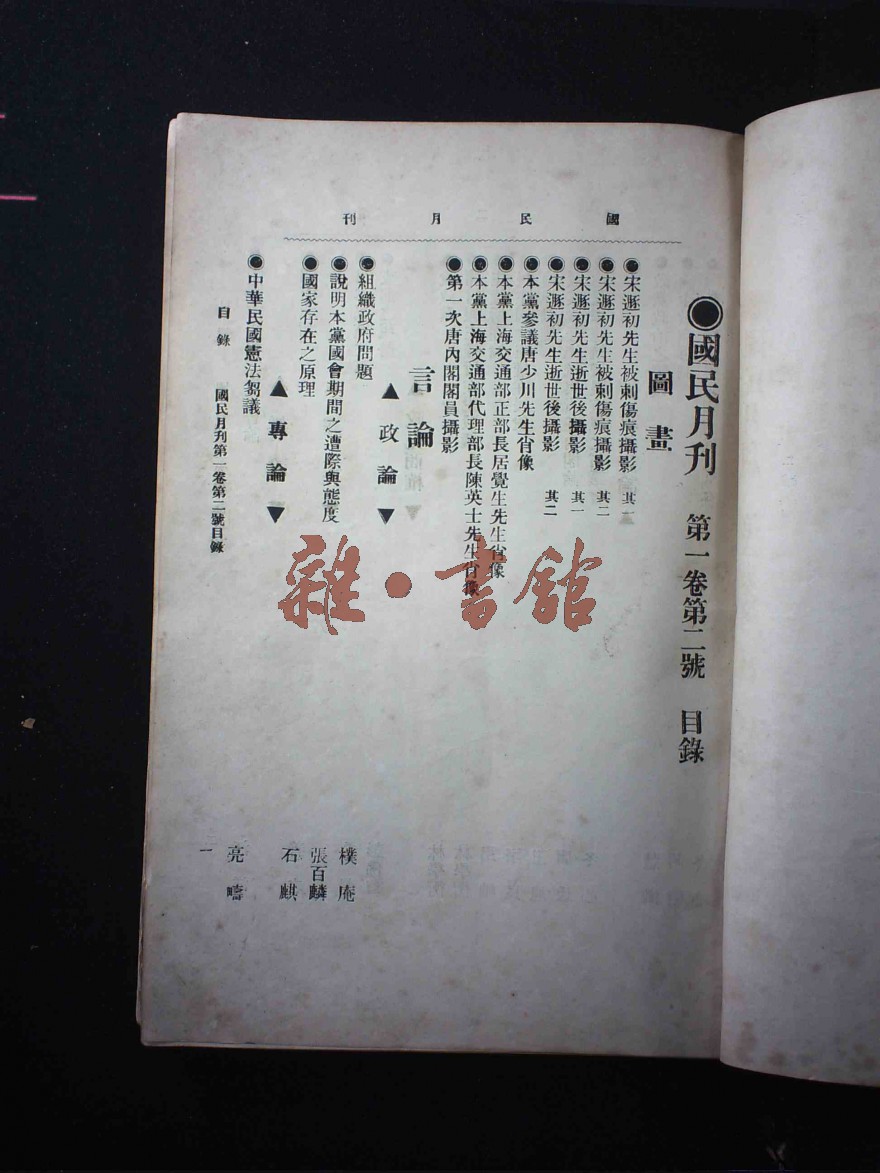 國民月刊
●國民月刊 第一卷第二號 目錄
圖畫
◉宋遯初先生被刺傷痕攝影 其一
◉宋遯初先生被刺傷痕攝影 其二
◉宋遯初先生逝世後攝影 其一
◉宋遯初先生逝世後攝影 其二
◉本黨參議唐少川先生肖像
◉本黨上海交通部正部長居覺生先生肖像
◉本黨上海交通部代理部長陳英士先生肖像
◉第一次唐內閣閣員攝影
言論
▲政論▼
◉組織政府問題 樸庵
◉說明本黨國會期間之遭際與態度 張百麟
◉國家存在之原理 石麒
▲專論▼
◉中華民國憲法芻議 亮疇
目錄 國民月刊第一卷第二號目錄 一
雜·書館